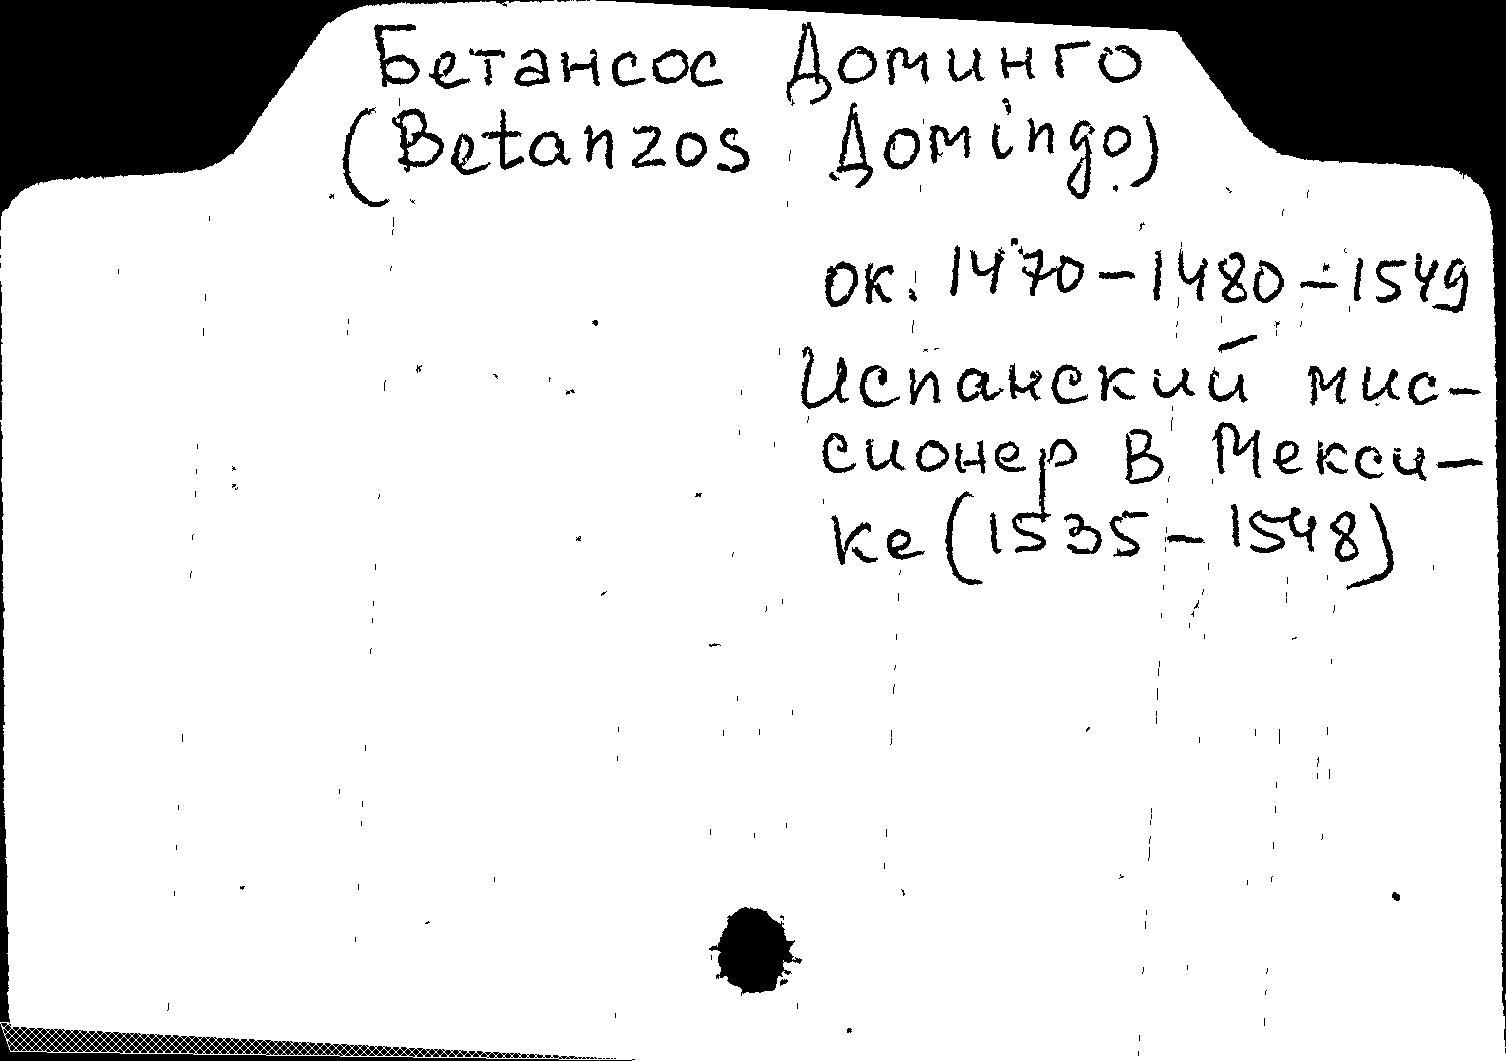 Бетансос Доминго
(Betanzos Доmingo)
ок. 1470-1480-1549
Испанский мис-
сионер в Мекси-
ке (1535-1548)